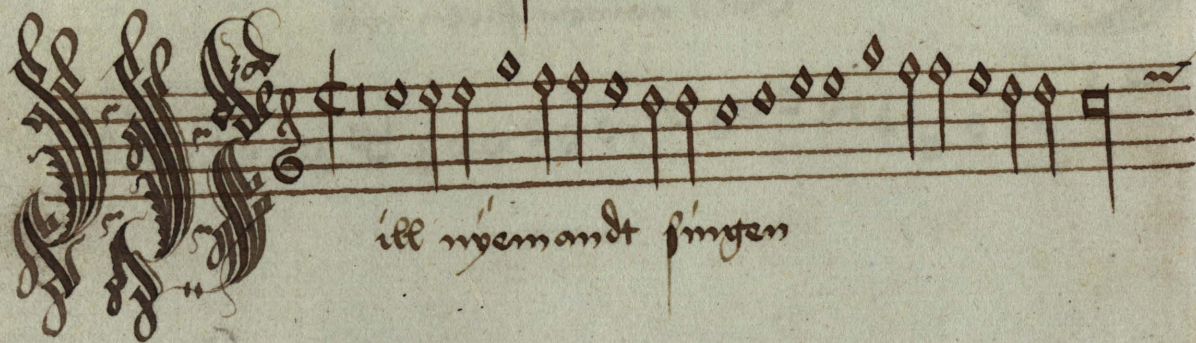 Will nyemandt singen